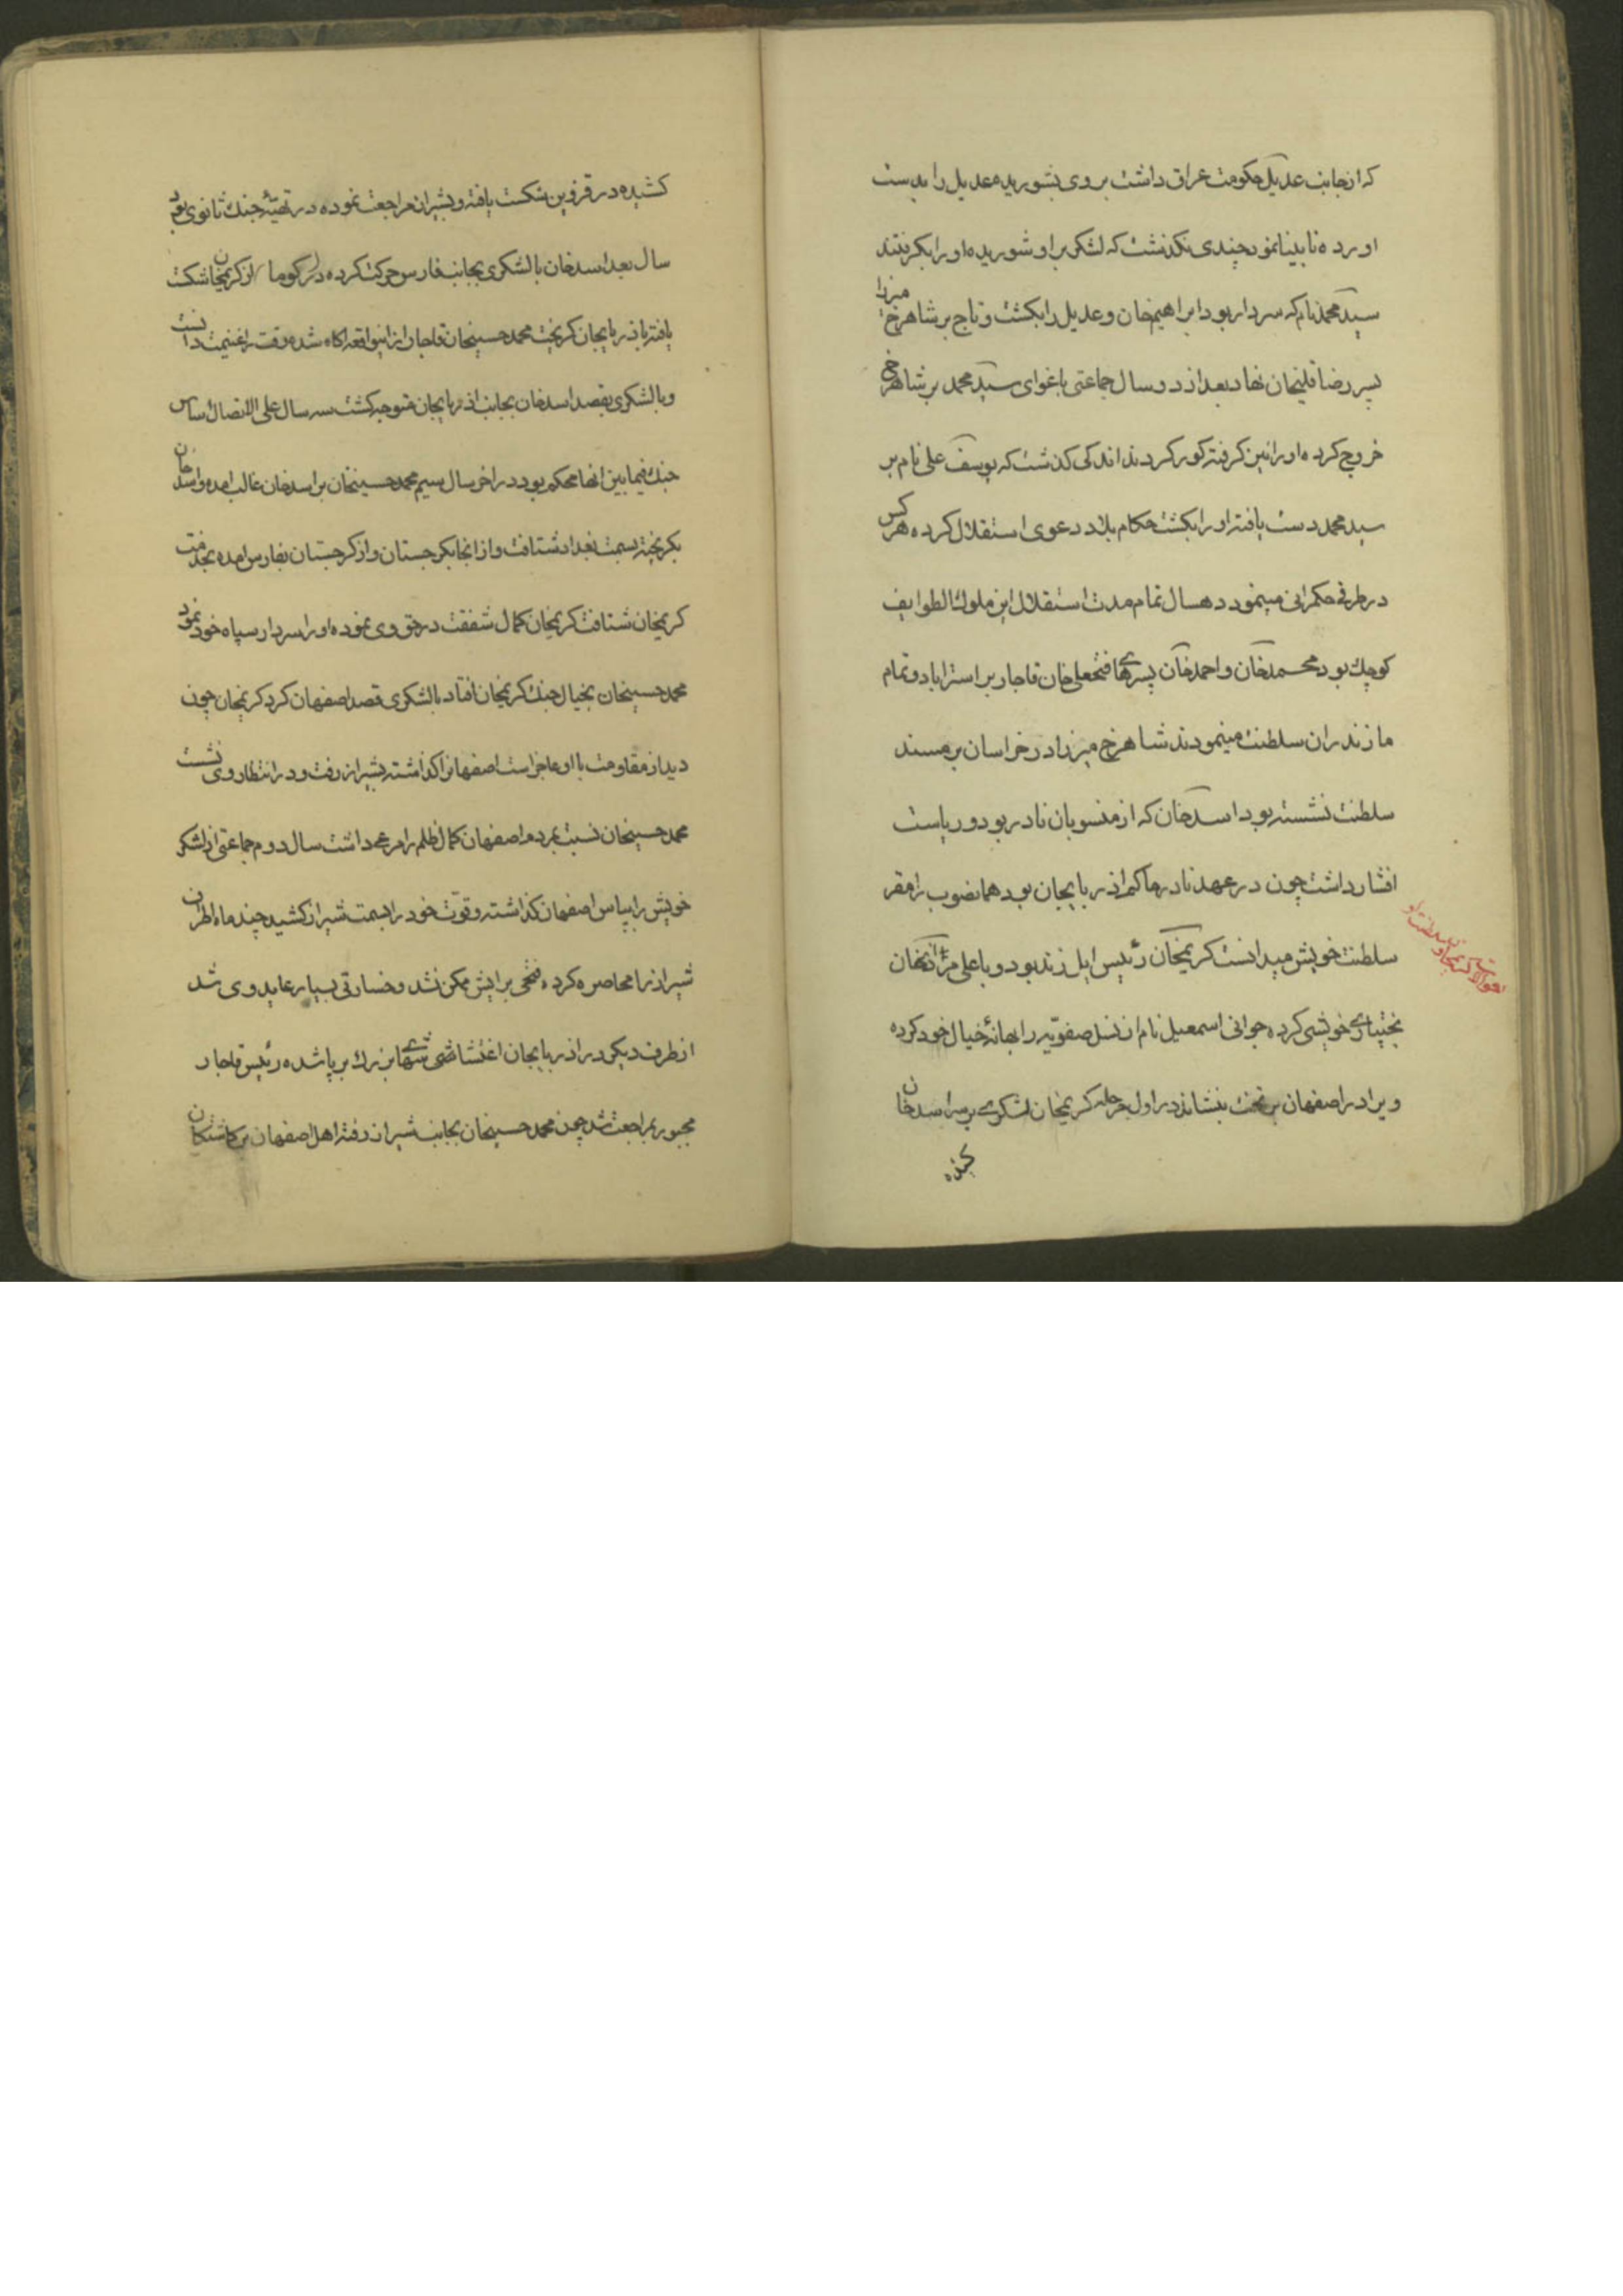 که ازجانب عدیل حکومت عراق داشت بروی بشوریده عدیل را بدست
اورده نابینا نمود چندی نکذشت که لشکر براو شوریده اورا بکرفتند
سید محمد نام که سردار بود ابراهیمخان وعدیل را بکشت و تاج بر شاهرخ میرزا
پسر رضا قلیخان نهاد بعد از دو سال جماعتی باغوای سید محمد بر شاهرخ
خروج کرده اورا نیز کرفته کور کردند اندکی کذشت که یوسف علی نام بر
سید محمد دست یافته اورا بکشت حکام بلاد دعوی استقلال کرده هرکس
در طرفی حکمرانی مینمود دهسال تمام مدت استقلال این ملوک الطوایف
کوچک بود محمدخان و احمدخان پسرهای فتحعلی خان قاجار بر استراباد و تمام
مازندران سلطنت مینمودند شاهرخ میرزا در خراسان بر مسند
سلطنت نشسته بود اسدخان که از منسوبان نادر بود و ریاست
افشار داشت چون در عهد نادر حاکم اذربایجان بود همانصوب را مقر
سلطنت خویش میدانست کریمخان رئیس ایل زند بود و با علی مردانخان
بختیاری خویشی کرده جوانی اسمعیل نام از نسل صفویه را بهانهٔ خیال خود کرده
ویرا در اصفهان بر تخت بنشاند در اول مرحله کریمخان لشکری بر سر اسدخان
کشیده
کشیده در قزوین شکست یافته و بشیراز مراجعت نموده در تهیهٔ جنک ثانوی بود
سال بعد اسدخان با لشکری بجانب فارس حرکت کرده در کوما از کریمخان شکست
یافته باذربایجان کریخت محمد حسینخان قاجار از اینواقعه اکاه شده وقت را غنیمت دانست
و با لشکری بقصد اسدخان بجانب اذربایجان متوجه کشت سه سال علی الاتصال اساس
جنک فیما بین انها محکم بود در اخر سال سیم محمد حسینخان بر اسدخان غالب امده و اسدخان
بکریخته بسمت بغداد شتافت و از انجا بکرجستان و از کرجستان بفارس امده بخدمت
کریمخان شتافت کریمخان کمال شفقت در حق وی نموده اورا سردار سپاه خود نمود
محمد حسینخان بخیال جنک کریمخان افتاد با لشکری قصد اصفهان کرد کریمخان چون
دید از مقاومت با او عاجز است اصفهانرا کذاشته بشیراز رفت و در انتظار وی نشست
محمد حسینخان نسبت بمردم اصفهان کمال ظلم را مرعی داشت سال دوم جماعتی از لشکر
خویش را بپاس اصفهان کذاشته و قوت خود را بسمت شیراز کشید چند ماه اطراف
شیراز را محاصره کرده فتحی برایش ممکن نشد و خسارتی بسیار عاید وی شد
از طرف دیکر در اذربایجان اغتشاشی بزرک بر پا شده رئیس قاجار
مجبور بمراجعت شد چون محمد حسینخان بجانب شیراز رفته اهل اصفهان بر کماشتکان